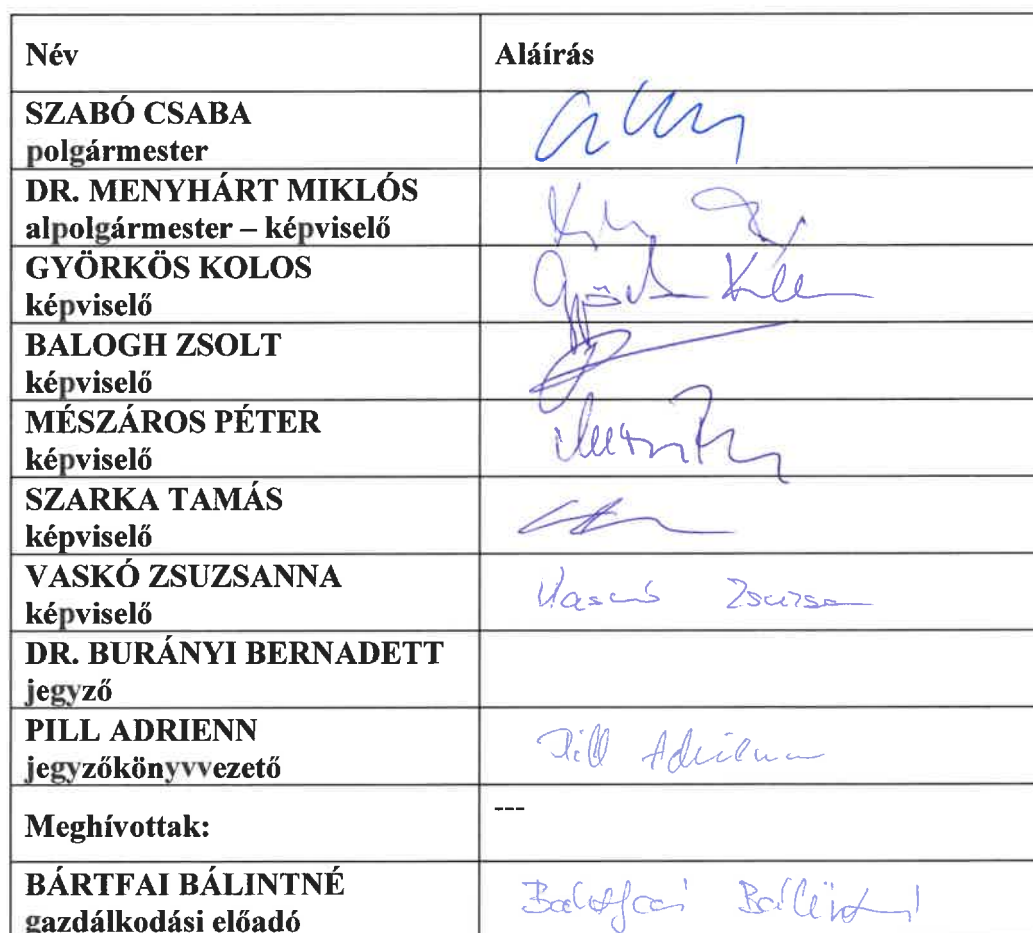 Név Aláírás
SZABÓ CSABA
polgármester
DR. MENYHÁRT MIKLÓS
alpolgármester – képviselő
GYÖRKÖS KOLOS
képviselő
BALOGH ZSOLT
képviselő
MÉSZÁROS PÉTER
képviselő
SZARKA TAMÁS
képviselő
VASKÓ ZSUZSANNA
képviselő
DR. BURÁNYI BERNADETT
jegyző
PILL ADRIENN
jegyzőkönyvvezető
Pill Adrienn
Meghívottak: ---
BÁRTFAI BÁLINTNÉ
gazdálkodási előadó